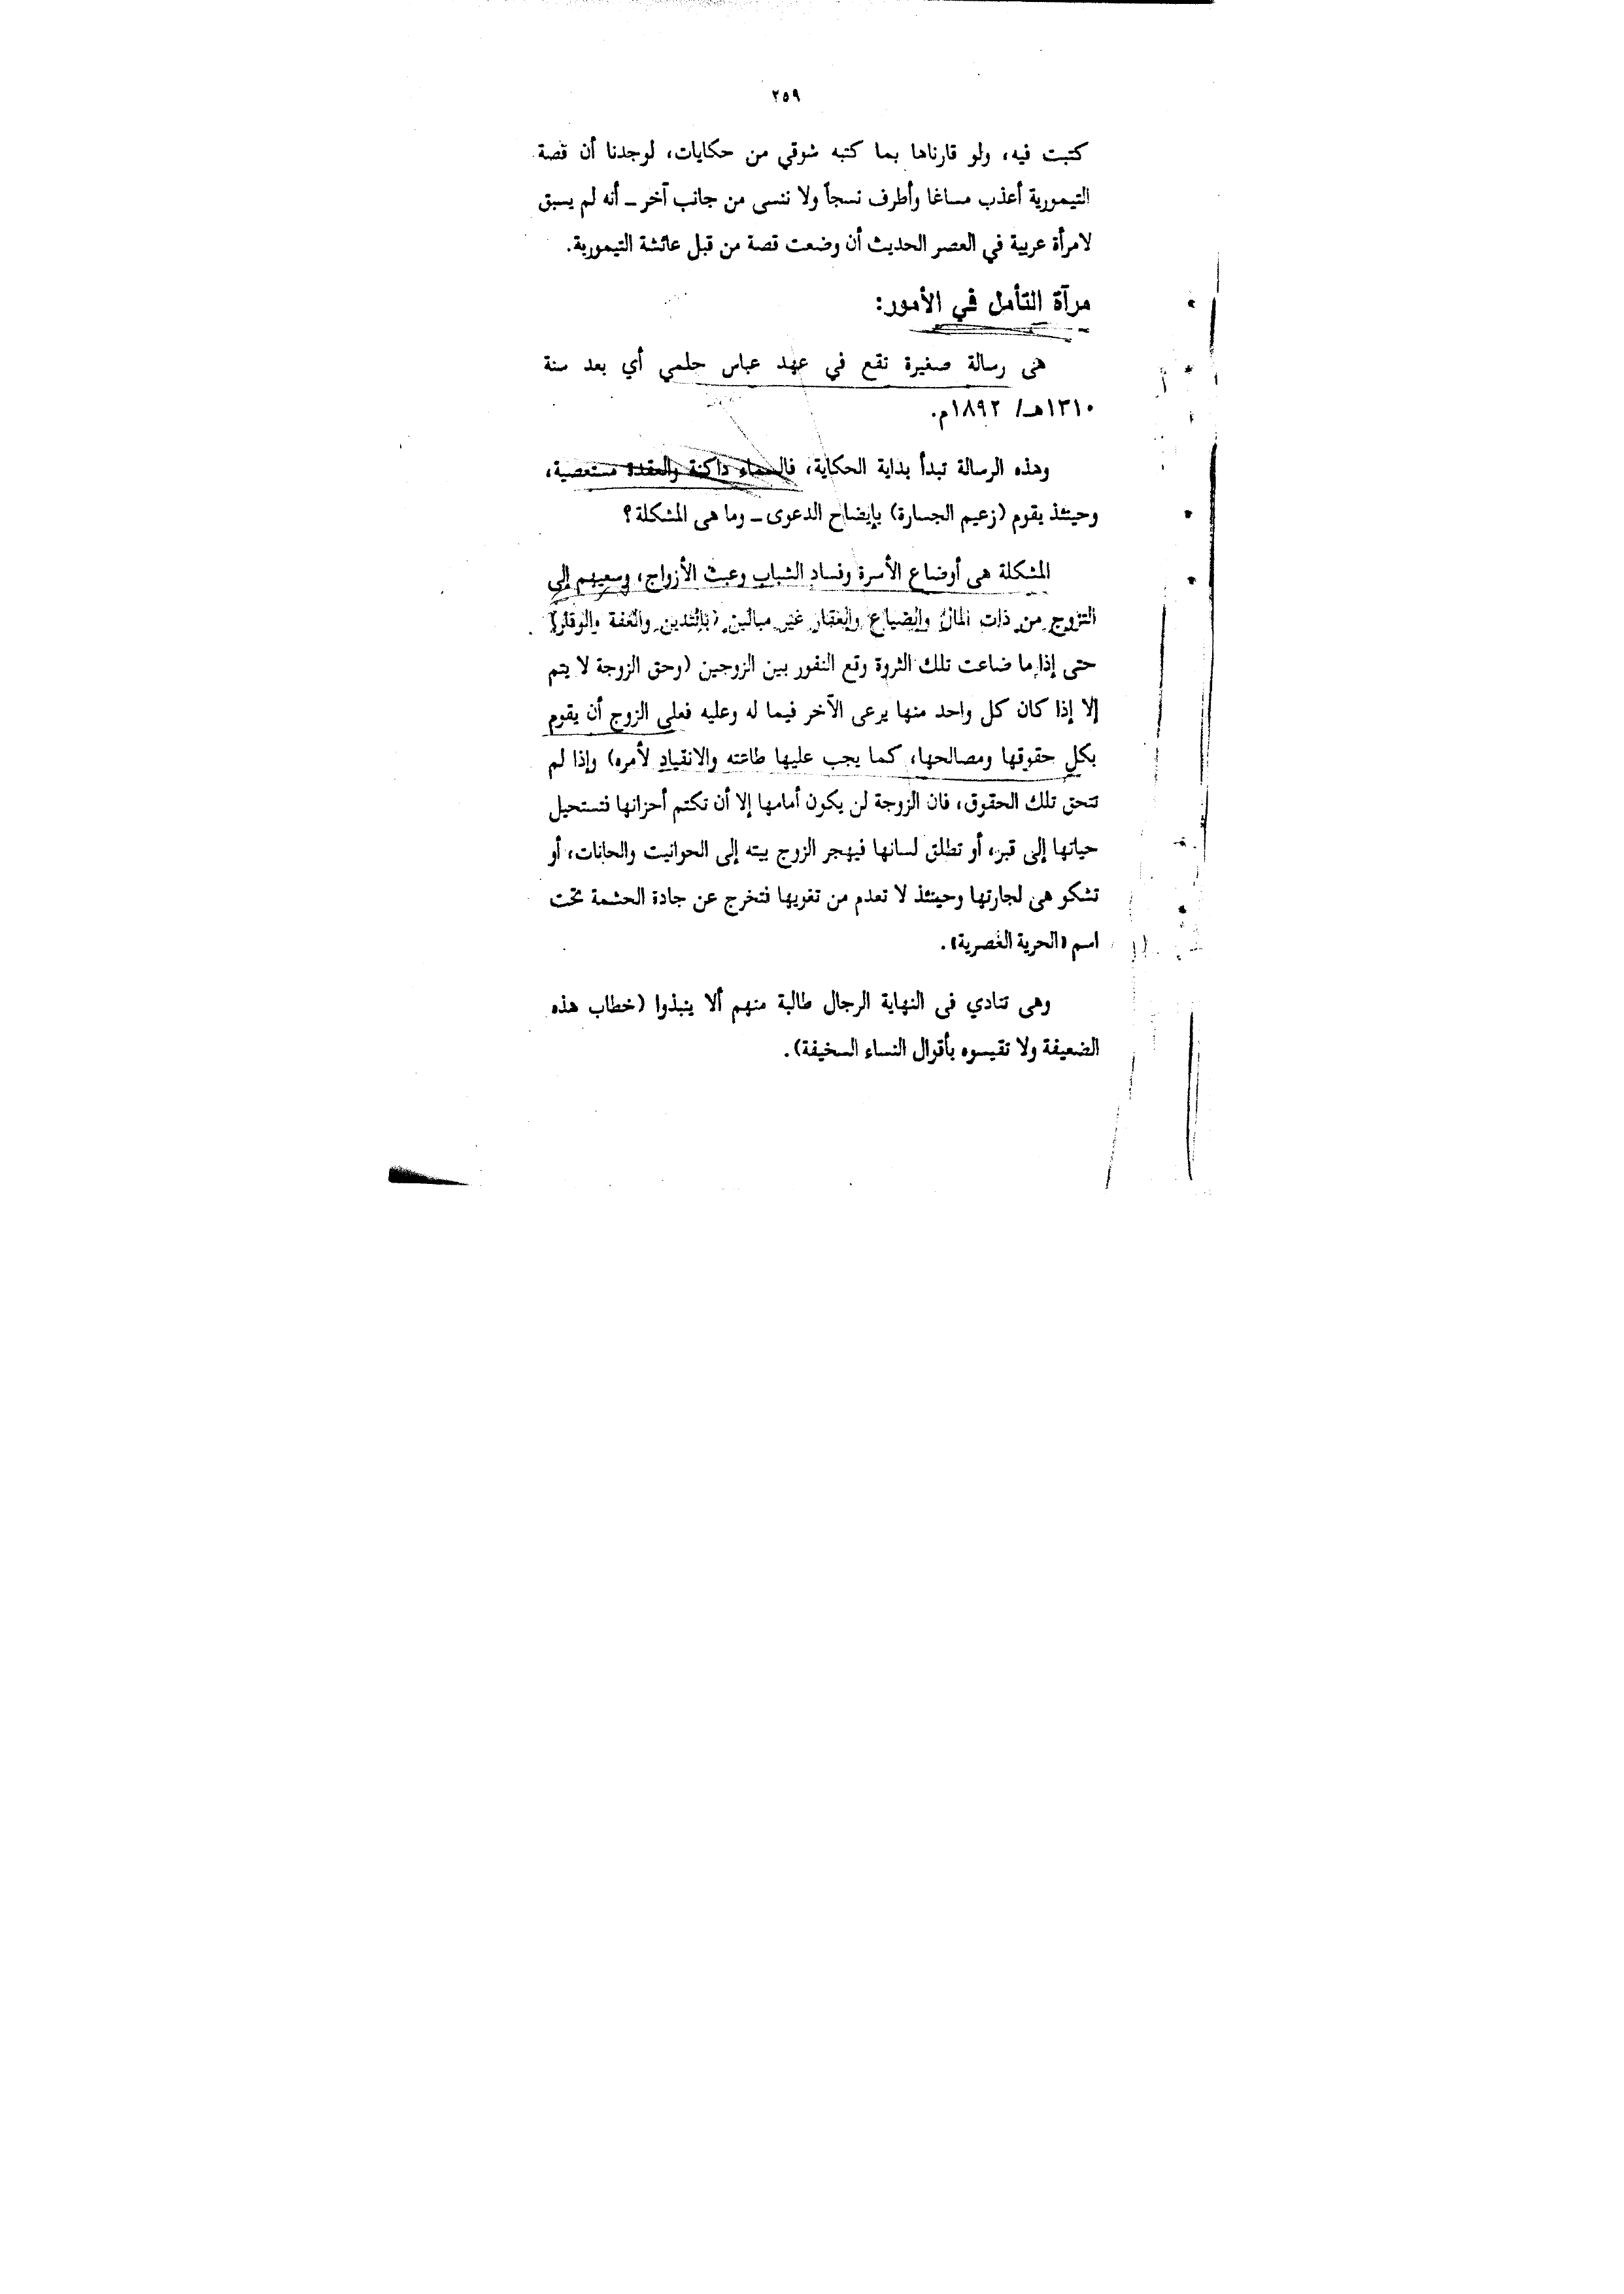 ٢٥٩
كتبت فيه، ولو قارناها بما كتبه شوقي من حكايات، لوجدنا أن قصة
التيمورية أعذب مساغا وأطرف نسجاً ولا ننسى من جانب آخر ـ أنه لم يسبق
لامرأة عربية في العصر الحديث أن وضعت قصة من قبل عائشة التيمورية.
مرآة التأمل في الأمور:
هى رسالة صغيرة تقع في عهد عباس حلمي أي بعد سنة
١٣١٠هـ/ ١٨٩٢م.
وهذه الرسالة تبدأ بداية الحكاية، فالسماء داكنة والعقدة مستعصية،
وحينئذ يقوم (زعيم الجسارة) بإيضاح الدعوى ـ وما هى المشكلة؟
المشكلة هى أوضاع الأسرة وفساد الشباب وعبث الأزواج، وسعيهم إلى
التزوج من ذات المال والضياع والعقار غير مبالين (بالتدين والعفة والوقار)
حتى إذا ما ضاعت تلك الثروة وقع النفور بين الزوجين (وحق الزوجة لا يتم
إلا إذا كان كل واحد منها يرعى الآخر فيما له وعليه فعلى الزوج أن يقوم
بكل حقوقها ومصالحها، كما يجب عليها طاعته والانقياد لأمره) وإذا لم
تتحق تلك الحقوق، فان الزوجة لن يكون أمامها إلا أن تكتم أحزانها فتستحيل
حياتها إلى قبر، أو تطلق لسانها فيهجر الزوج بيته إلى الحوانيت والحانات، أو
تشكو هى لجارتها وحينئذ لا تعدم من تغويها فتخرج عن جادة الحشمة تحت
اسم «الحرية العصرية».
وهى تنادي فى النهاية الرجال طالبة منهم ألا ينبذوا (خطاب هذه
الضعيفة ولا تقيسوه بأقوال النساء السخيفة).